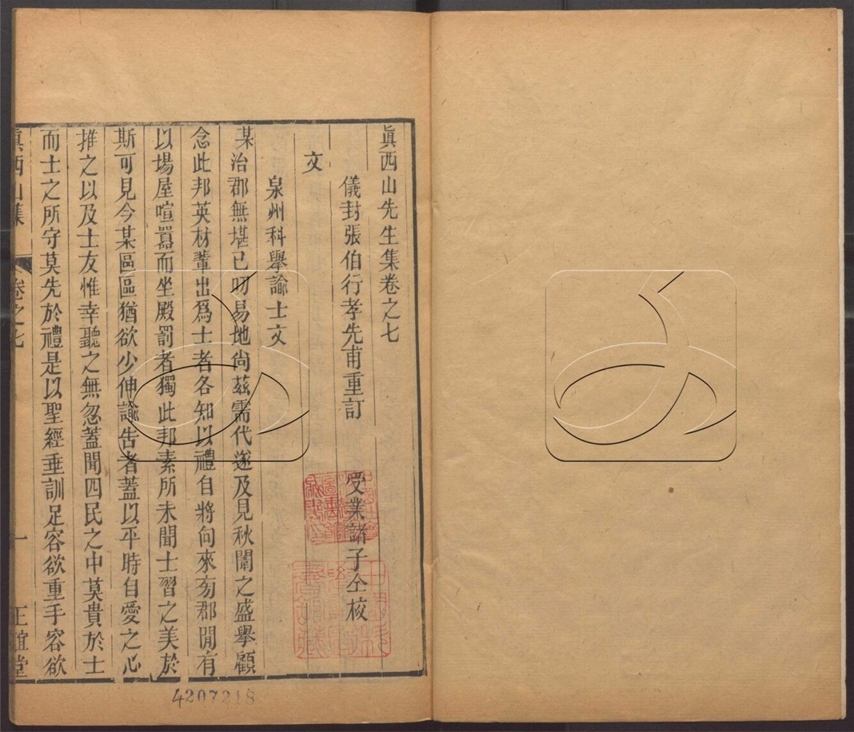 眞西山先生集卷之七
儀封張伯行孝先甫重訂 受業諸子仝校
文
泉州科舉諭士文
某治郡無堪已叨易地尚茲需代遂及見秋闈之盛舉顧
念此邦英材輩出爲士者各知以禮自將向來旁郡閒有
以場屋喧囂而坐殿罰者獨此邦素所未聞士習之美於
斯可見今某區區猶欲少伸諭告者蓋以平時自愛之心
推之以及士友惟幸聽之無忽蓋聞四民之中莫貴於士
而士之所守莫先於禮是以聖經垂訓足容欲重手容欲
眞西山集 卷之七 一 正誼堂
4207218